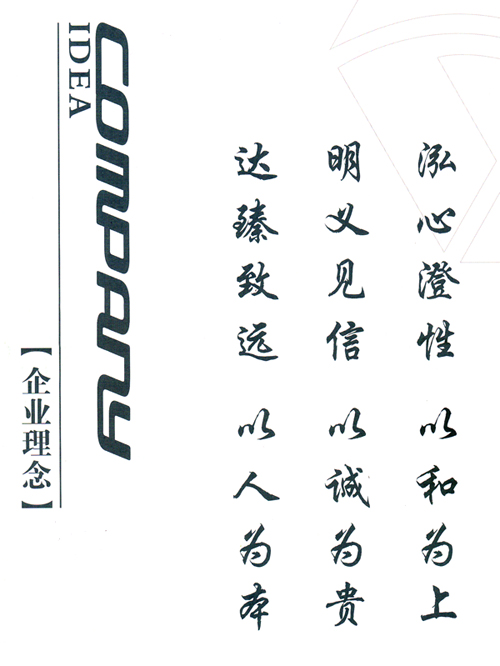 泓心澄性 以和为上
明义见信 以诚为贵
达臻致远 以人为本
COMPANY
IDEA
【企业理念】